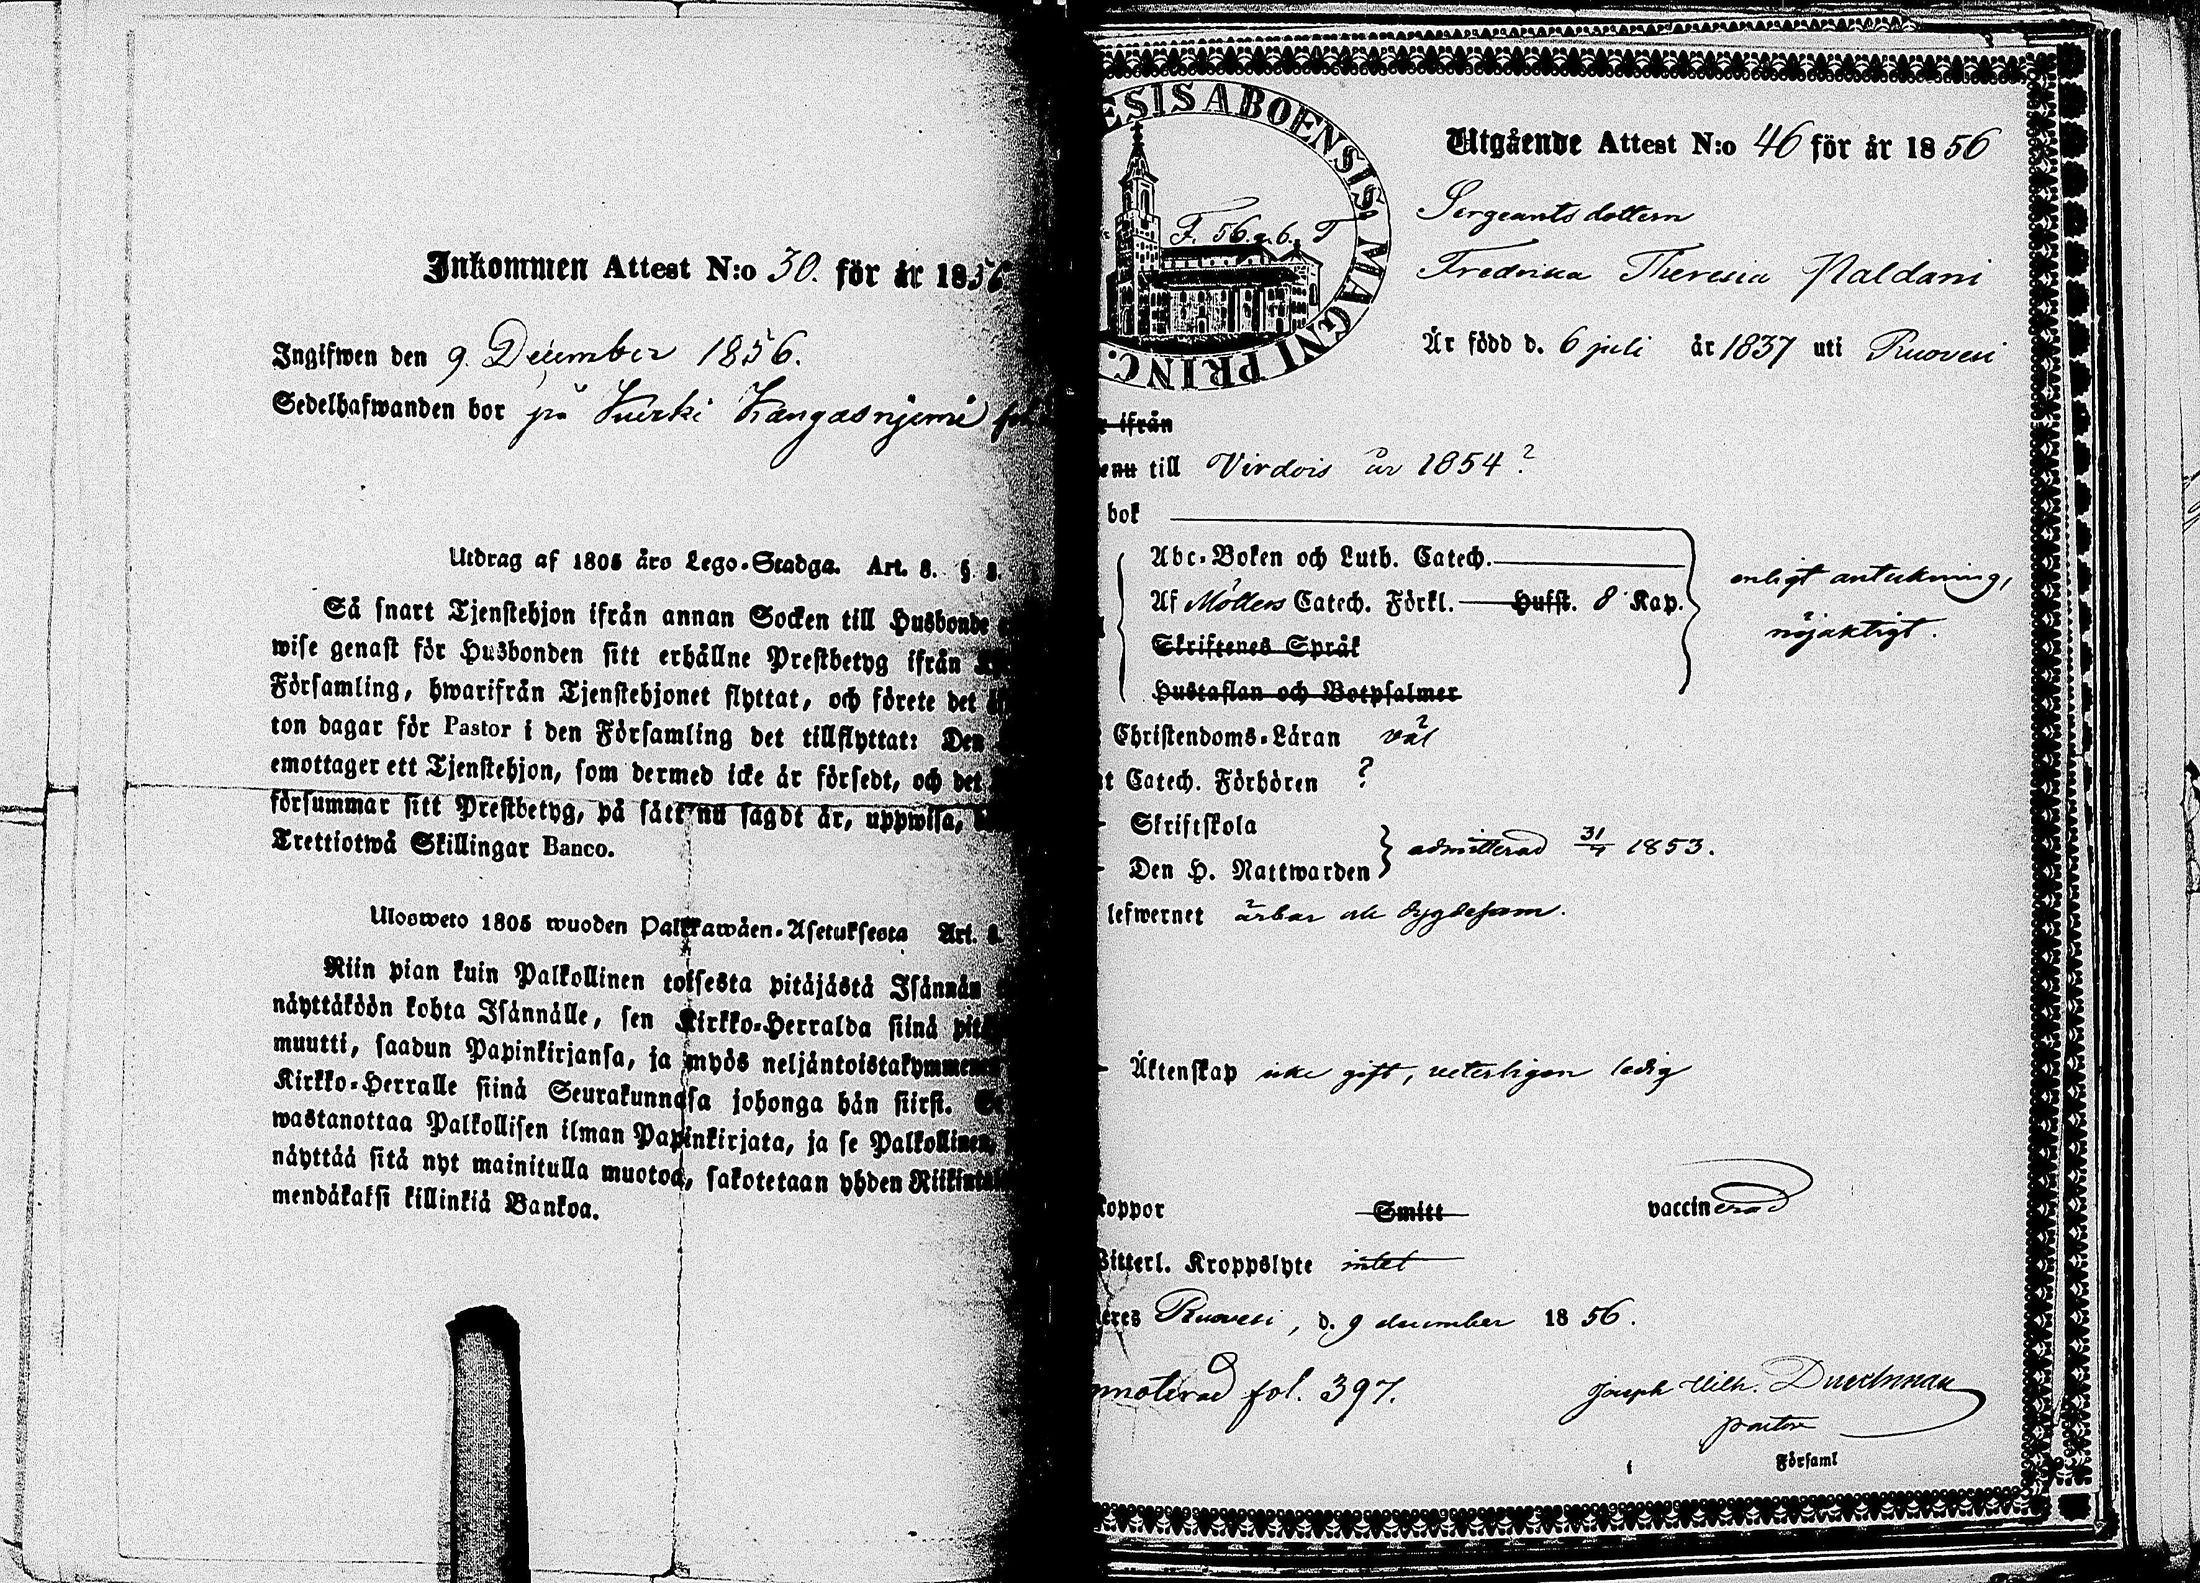 Inkommen Attest N:o 30. för år 1856
Ingifwen den 9. December 1856.
Sedelhafwanden bor på Kangasnjemi
Utdrag af 1805 års Lego-Stadga. Art. 8. §. 8.
Så snart Tjenstehjon ifrån annan Socken till Husbonde
wise genast för Husbonden sitt erhållne Prestbetyg ifrån
Församling, hwarifrån Tjenstehjonet flyttat, och förete det
ton dagar för Pastor i den Församling det tillflyttat: Den
emottager ett Tjenstehjon, som dermed icke är försedt, och det
försummar sitt Prestbetyg, på sätt nu sagdt är, uppwisa,
Trettiotwå Skillingar Banco.
Ulosweto 1805 wuoden Palkkawäen-Asetuksesta Art. 8.
Niin pian kuin Palkollinen toisesta pitäjästä Isännän
näyttäköön kohta Isännälle, sen Kirkko-Herralda siinä
muutti, saadun Papinkirjansa, ja myös neljäntoistakymmenen
Kirkko-Herralle siinä Seurakunnasa johonga hän siirst.
wastanottaa Palkollisen ilman Papinkirjata, ja se Palkollinen,
näyttää sitä nyt mainitulla muotoa, sakotetaan yhden
mendäkaksi killinkiä Bankoa.
ESIS ABOENSIS MAGNI PRINC.
F. 56. a. b. T
Utgående Attest N:o 46 för år 1856
Sergeantsdottern
Fredrika Theresia Naldani
Är född d. 6 juli år 1837 uti Ruovesi
ifrån
till Virdois år 1854?
bok
Abc-Boken och Luth. Catech.
Af Möllers Catech. Förkl. Hufst. 8 Kap.
enligt anteckning,
nöjaktigt.
Skriftenes Språk
Hustaflan och Botpsalmer
Christendoms-Läran väl
Catech. Förhören ?
Skriftskola
Den H. Nattwarden
admitterad 31/7 1853.
lefwernet ärbar och dygdesam.
Äktenskap icke gift, veterligen ledig
koppor Smitt vaccinerad
Witterl. Kroppslyte intet
Ruovesi, d. 9 december 1856.
nnoterad fol. 397.
Joseph Wilh. Durchman
pastor
i Församl